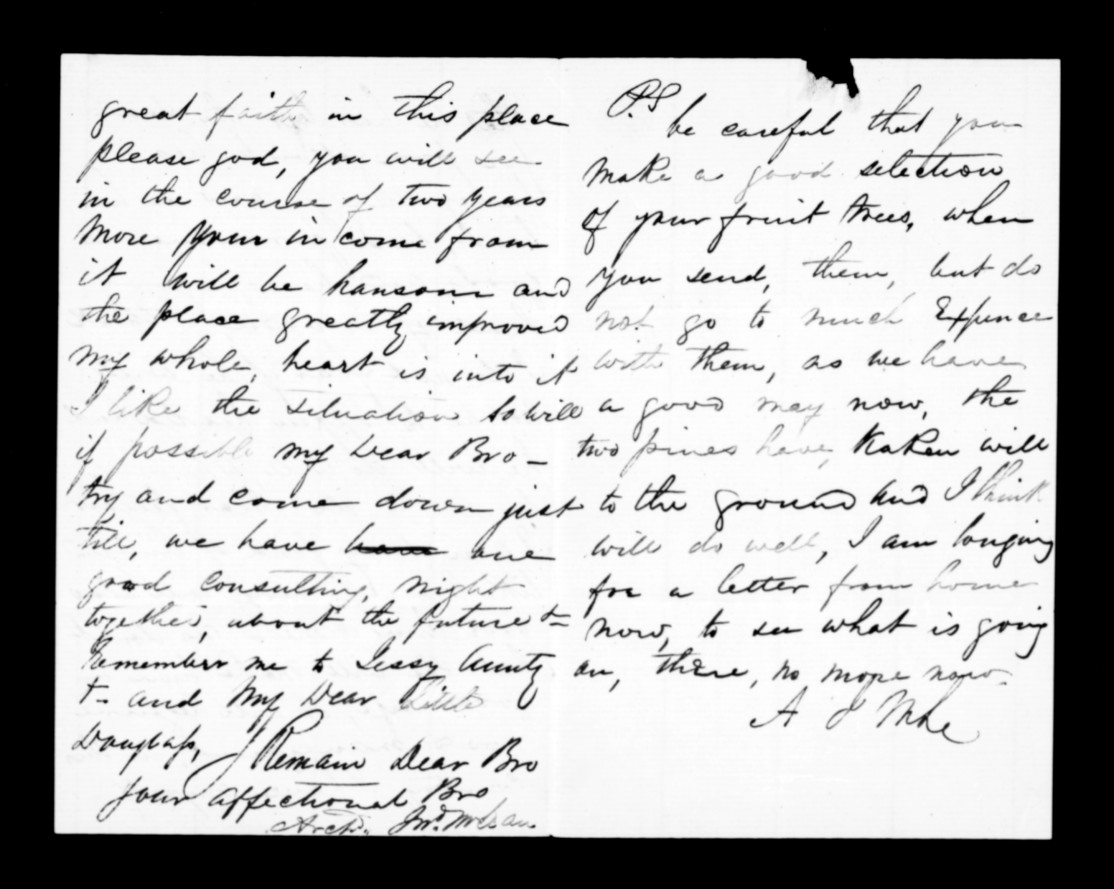 great faith in this place
please god, you will see
in the course of two years
More your in come from
it will be hansom and
the place greatly improved
my whole, heart is into it
I like the situation so will
if possible my Dear Bro -
try and come down just
till, we have one
good consulting, night
together, about the future
Remember me to Jessy Aunty
+ and My Dear Little
Douglass,
I Remain Dear Bro
your affectional Bro
Archd. Jno. McLean
P.S
be careful that you
make a good selection
of your fruit trees, when
you send, them, but do
not go to much Expence
with them, as we have
a good many now, the
two pines have, taken will
to the ground and I think
will do well, I am longing
for a letter from home
now, to see what is going
on, there, no more now.
A J McLe